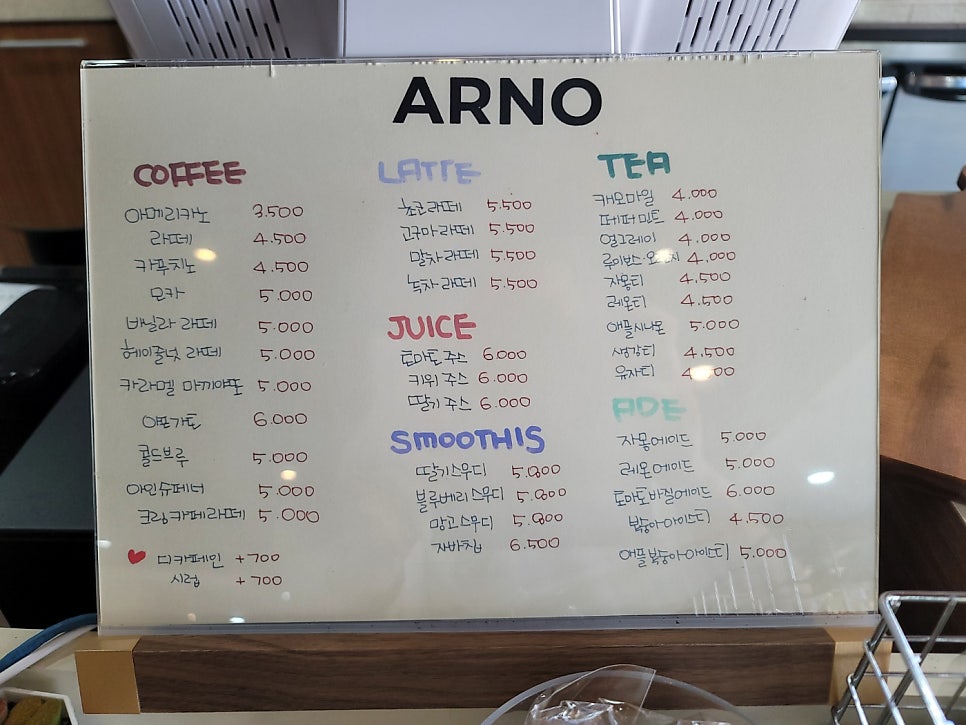 ARNO
COFFEE
아메리카노 3.500
라떼 4.500
카푸치노 4.500
모카 5.000
바닐라 라떼 5.000
헤이즐넛 라떼 5.000
카라멜 마끼야또 5.000
아포가토 6.000
콜드브루 5.000
아인슈페너 5.000
크랑카페라떼 5.000
♥ 디카페인 +700
시럽 +700
LATTE
초코라떼 5.500
고구마라떼 5.500
말차라떼 5.500
녹차라떼 5.500
JUICE
토마토 주스 6.000
키위 주스 6.000
딸기 주스 6.000
SMOOTHIS
딸기스무디
블루베리스무디
망고스무디
자바칩 6.500
TEA
캐모마일 4.000
페퍼민트 4.000
얼그레이 4.000
루이보스 4.000
자몽티 4.500
레몬티 4.500
애플시나몬 5.000
생강티 4.500
유자티
ADE
자몽에이드 5.000
레몬에이드 5.000
토마토바질에이드 6.000
복숭아아이스티 4.500
애플복숭아아이스티 5.000